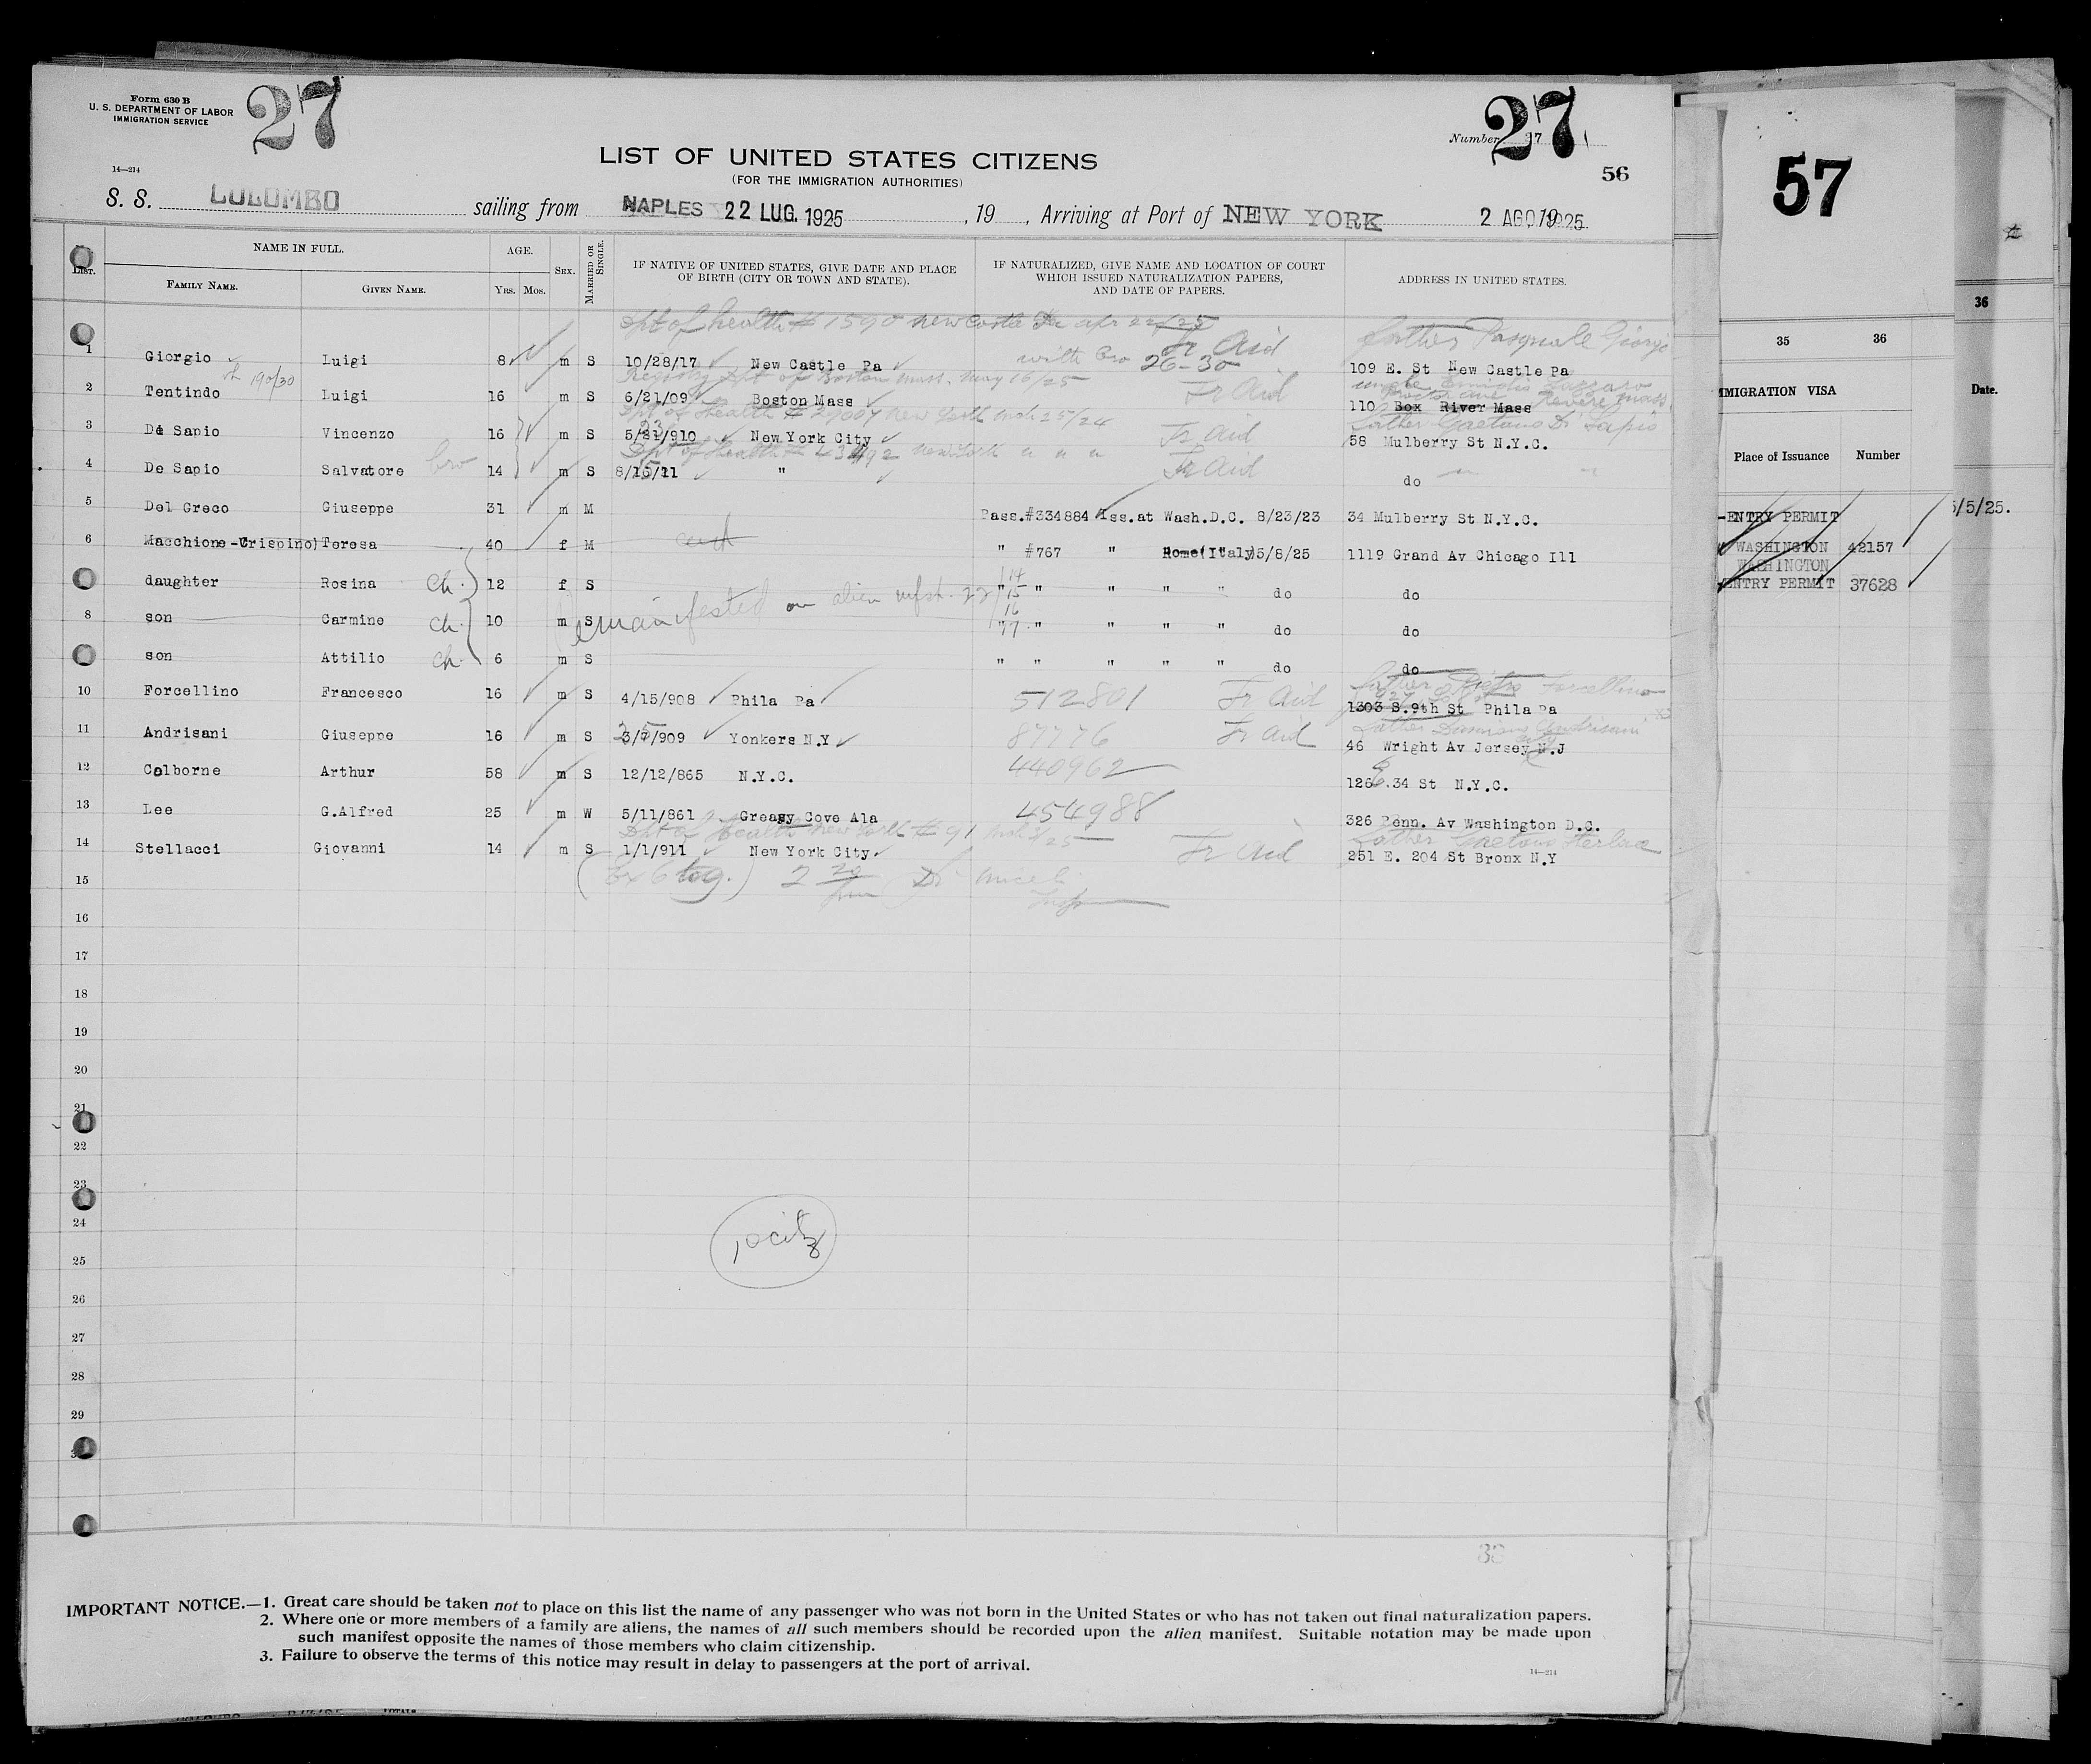 Form 630 B
U. S. DEPARTMENT OF LABOR
IMMIGRATION SERVICE
27
Number 27
27
14—214
LIST OF UNITED STATES CITIZENS
(FOR THE IMMIGRATION AUTHORITIES)
56
S. S. COLOMBO sailing from NAPLES 22 LUG. 1925, 19 , Arriving at Port of NEW YORK 2 AGO 1925
LIST. NAME IN FULL. AGE. SEX. MARRIED OR SINGLE. IF NATIVE OF UNITED STATES, GIVE DATE AND PLACE OF BIRTH (CITY OR TOWN AND STATE). IF NATURALIZED, GIVE NAME AND LOCATION OF COURT WHICH ISSUED NATURALIZATION PAPERS, AND DATE OF PAPERS. ADDRESS IN UNITED STATES.
FAMILY NAME. GIVEN NAME. YRS. MOS.
Dpt of health # 1590 new castle Pa apr 22/25 father Pasquale Giorgio
with bro 26-30 Fr Aid
1 Giorgio Luigi 8 m S 10/28/17 New Castle Pa 109 E. St New Castle Pa
Registry Dpt of Boston mass. may 16/25 Fr Aid uncle
2 Tentindo Luigi 16 m S 6/21/09 Boston Mass 110 Box River Mass Revere mass
Dpt of Health # new York mch 25/24 Fr Aid father Gaetano Di Sapio
3 De Sapio Vincenzo 16 m S 5/31/910 New York City 58 Mulberry St N.Y.C.
Dpt of Health # new York " " " Fr Aid
4 De Sapio Salvatore bro 14 m S 8/15/11 " do
5 Del Greco Giuseppe 31 m M Pass.#334884 Iss.at Wash.D.C. 8/23/23 34 Mulberry St N.Y.C.
6 Macchione-Crispino) Teresa 40 f M " #767 " Rome(Italy)5/8/25 1119 Grand Av Chicago Ill
daughter Rosina ch. 12 f S " " " " " do do
remanifested on alien mfst. 22/14 15 16 17
8 son Carmine ch. 10 m S " " " " " do do
son Attilio ch. 6 m S " " " " " do do
father Pietro Forcellino
10 Forcellino Francesco 16 m S 4/15/908 Phila Pa 512801 Fr Aid 1303 S.9th St Phila Pa
father Andrisani
11 Andrisani Giuseppe 16 m S 3/7/909 Yonkers N.Y 87776 Fr Aid 46 Wright Av Jersey City N.J
12 Colborne Arthur 58 m S 12/12/865 N.Y.C. 440962 126 E.34 St N.Y.C.
13 Lee G.Alfred 25 m W 5/11/861 Greasy Cove Ala 454988 326 Penn. Av Washington D.C.
Dpt of Health new York # 91 25 Fr Aid father Gaetano
14 Stellacci Giovanni 14 m S 1/1/911 New York City 251 E. 204 St Bronx N.Y
15
16
17
18
19
20
21
22
23
24
10 citz
25
26
27
28
29
IMPORTANT NOTICE.—1. Great care should be taken not to place on this list the name of any passenger who was not born in the United States or who has not taken out final naturalization papers.
2. Where one or more members of a family are aliens, the names of all such members should be recorded upon the alien manifest. Suitable notation may be made upon
such manifest opposite the names of those members who claim citizenship.
3. Failure to observe the terms of this notice may result in delay to passengers at the port of arrival.
14—214
57
36
35 36
IMMIGRATION VISA Date.
Place of Issuance Number
-ENTRY PERMIT 5/5/25.
WASHINGTON 42157
WASHINGTON
ENTRY PERMIT 37628